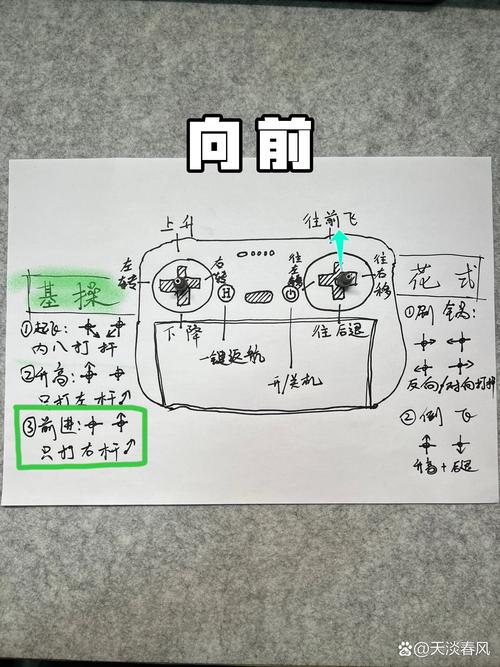 向前
上升
往前飞
左转
右转
往左移
往右移
H
下降
往后退
一键返航
开/关机
基操
①起飞：
内八打杆
②升高：
只打左杆
③前进：
只打右杆
花式
①刷锅：
反向/对向打杆
②倒飞
升高+后退
@天淡春风